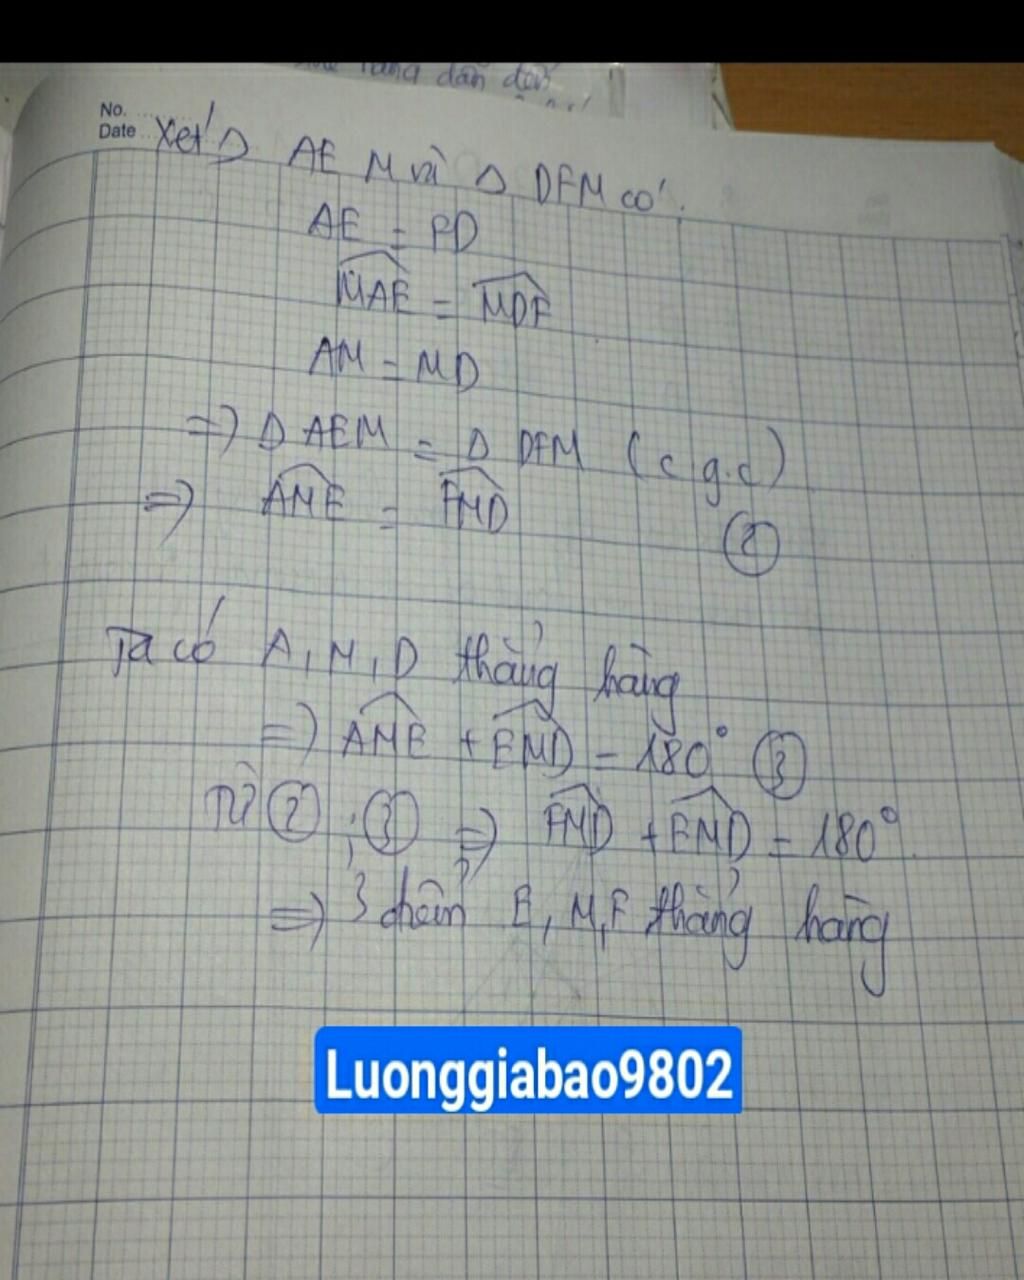 No.
Date
Xét Δ AEM và Δ DFM có:
AE = FD
MAE = MDF
AM = MD
=> Δ AEM = Δ DFM (c g.c)
=> AME = FMD
②
Ta có A, M, D thẳng hàng
=> AME + EMD = 180° ③
Từ ② ; ③ => FMD + EMD = 180°
=> 3 điểm E, M, F thẳng hàng
Luonggiabao9802